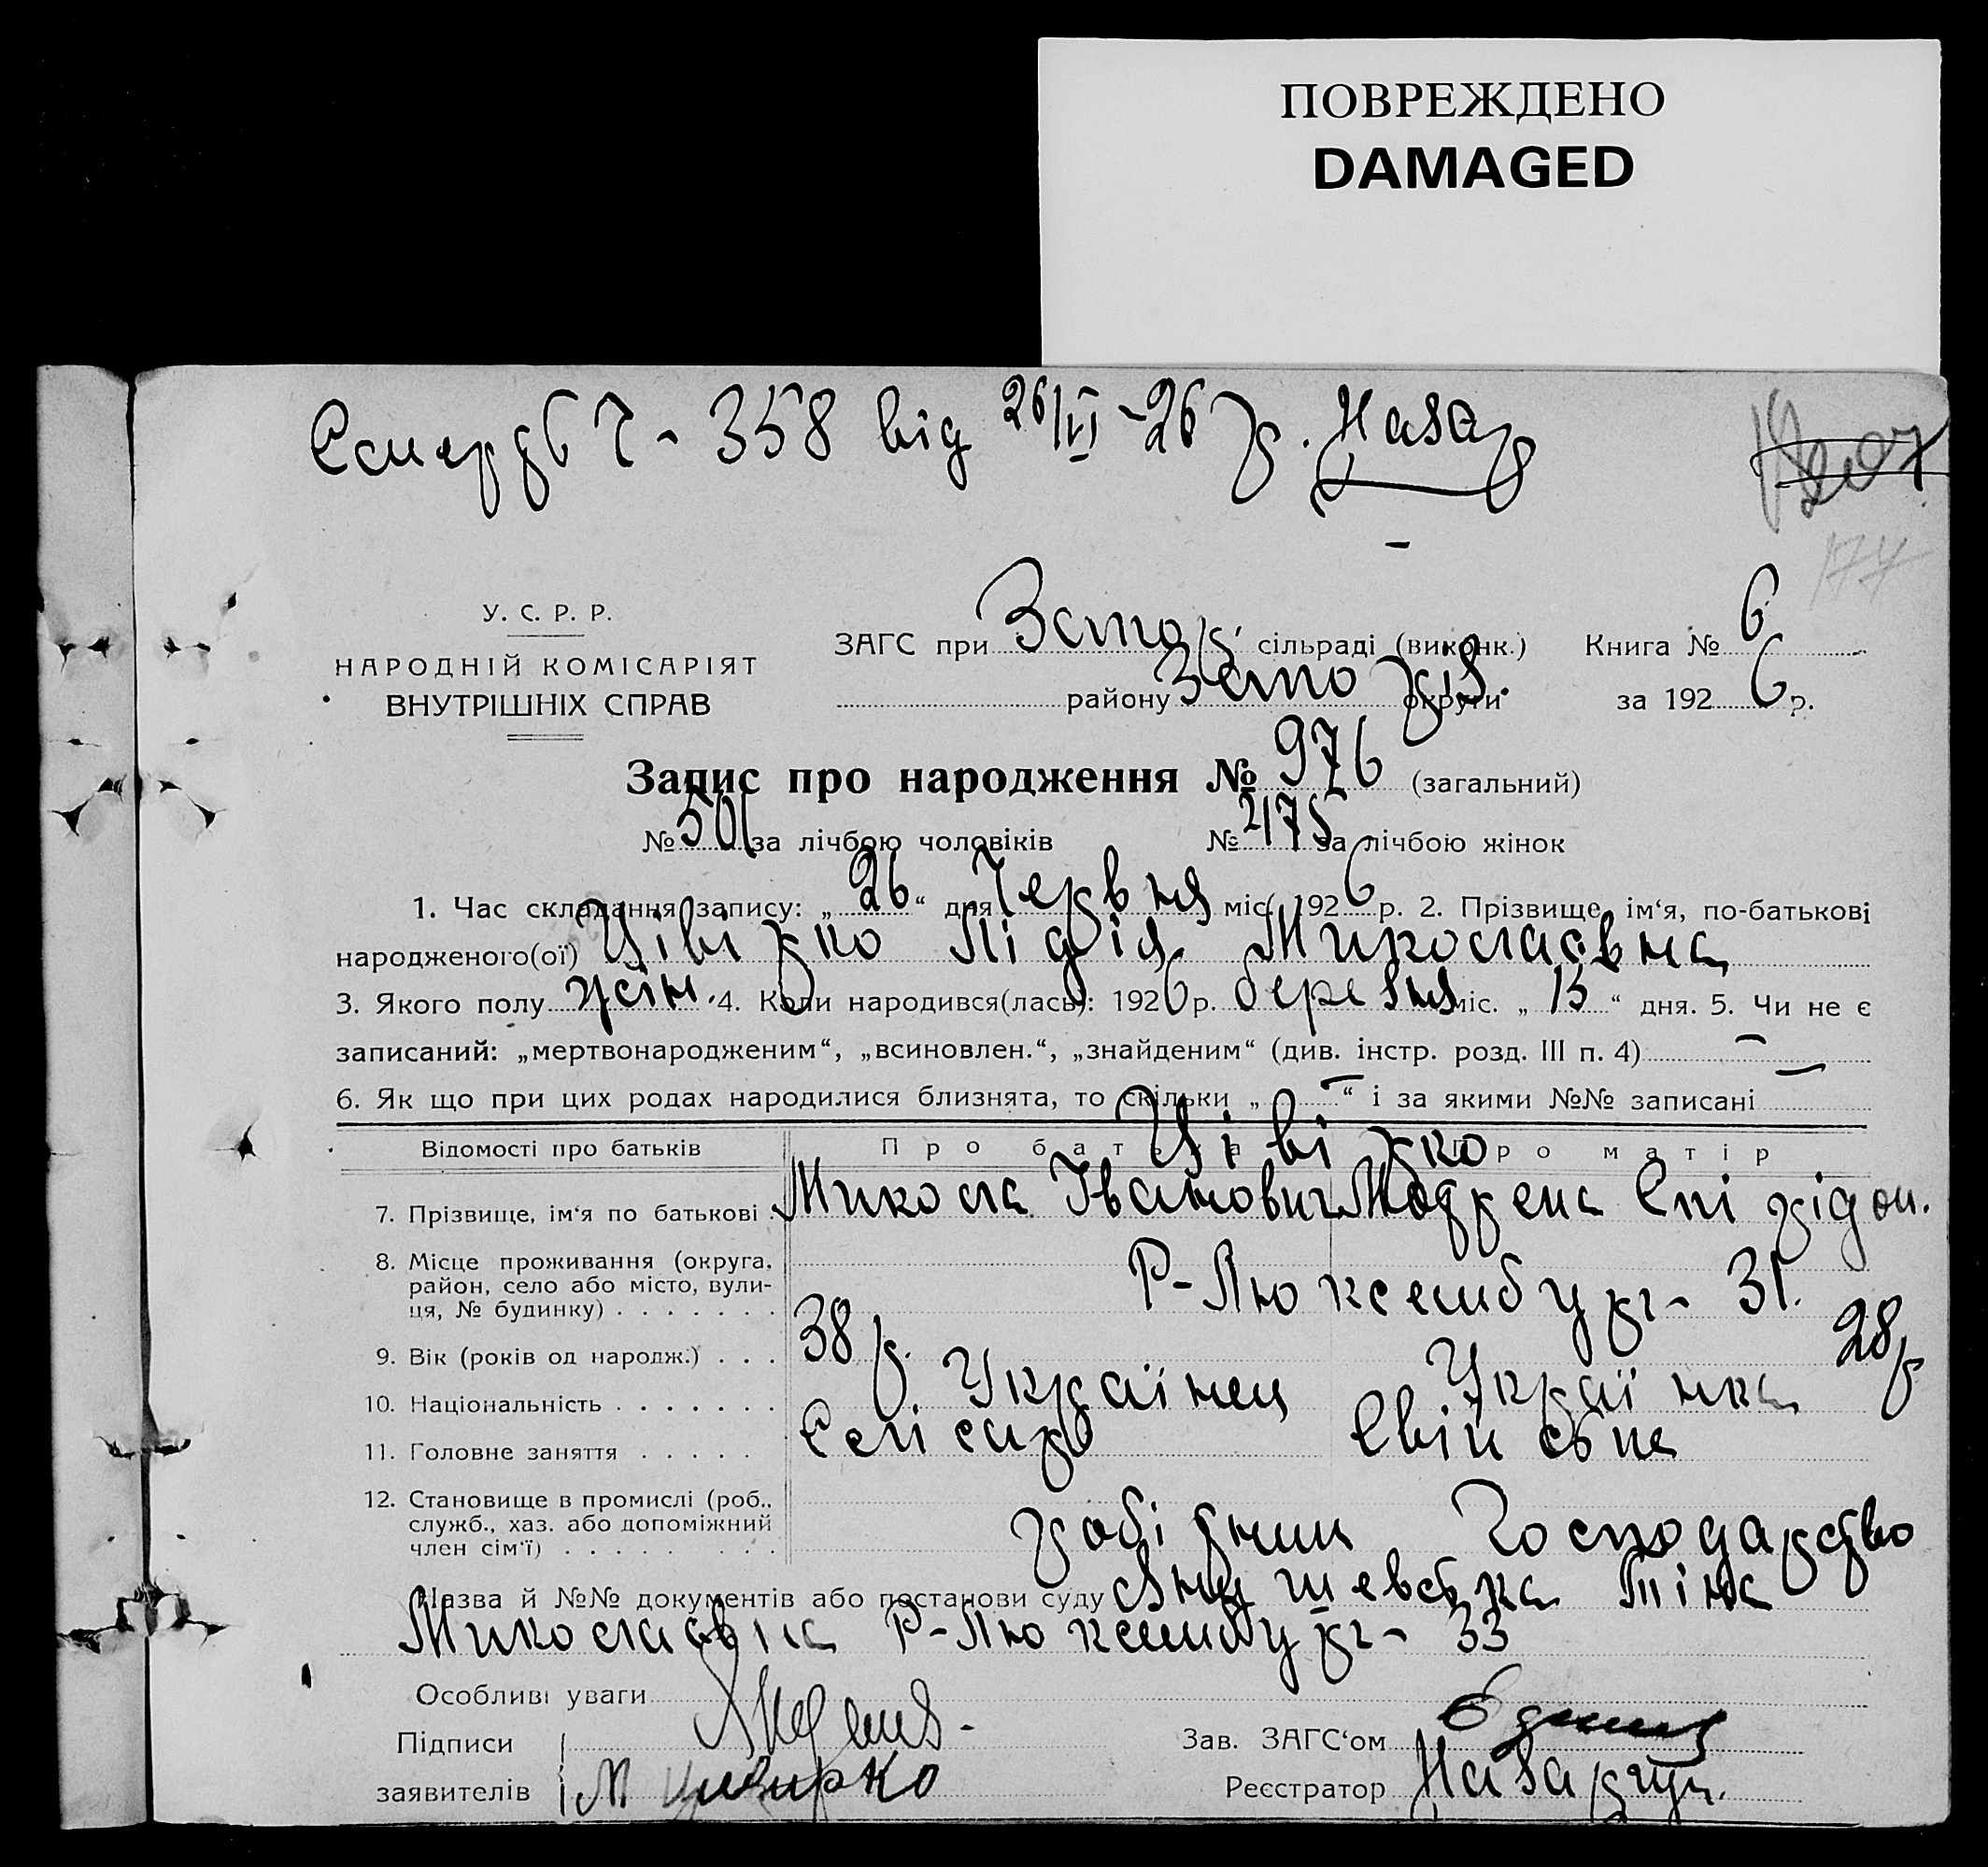 ПОВРЕЖДЕНО
DAMAGED
Смерть Ч - 358 від 26/VI - 26 р. Назар
177
У. С. Р. Р.
НАРОДНІЙ КОМІСАРІЯТ
ВНУТРІШНІХ СПРАВ
ЗАГС при сільраді (виконк.) Книга № 6
району округи за 192 6 р.
Запис про народження № 976 (загальний)
№ 501 за лічбою чоловіків № 475 за лічбою жінок
1. Час складання запису: „ 26 “ дня Червня міс. 192 6 р. 2. Прізвище, ім‘я, по-батькові
народженого(ої) Цівірко Лідія Миколаєвна
3. Якого полу жін. 4. Коли народився(лась): 192 6 р. березня міс. „ 15 “ дня. 5. Чи не є
записаний: „мертвонародженим“, „всиновлен.“, „знайденим“ (див. інстр. розд. III п. 4) —
6. Як що при цих родах народилися близнята, то скільки „ — “ і за якими №№ записані —
Відомості про батьків Про батька Про матір
Цівірко
7. Прізвище, ім‘я по батькові Микола Іванович Мотрена Спірідон.
8. Місце проживання (округа,
район, село або місто, вули-
ця, № будинку) Р-Люксембург - 31.
9. Вік (років од народж.) 38 р. 28 р
10. Національність Українец Українка
11. Головне заняття Слісарь Свійська
12. Становище в промислі (роб.,
служб., хаз. або допоміжний
член сім‘ї) робітник Господарство
Назва й №№ документів або постанови суду Тіна
Миколаєвна Р-Люксембург - 33
Особливі уваги
Підписи
Зав. ЗАГС‘ом
заявителів М Цивирко
Реєстратор